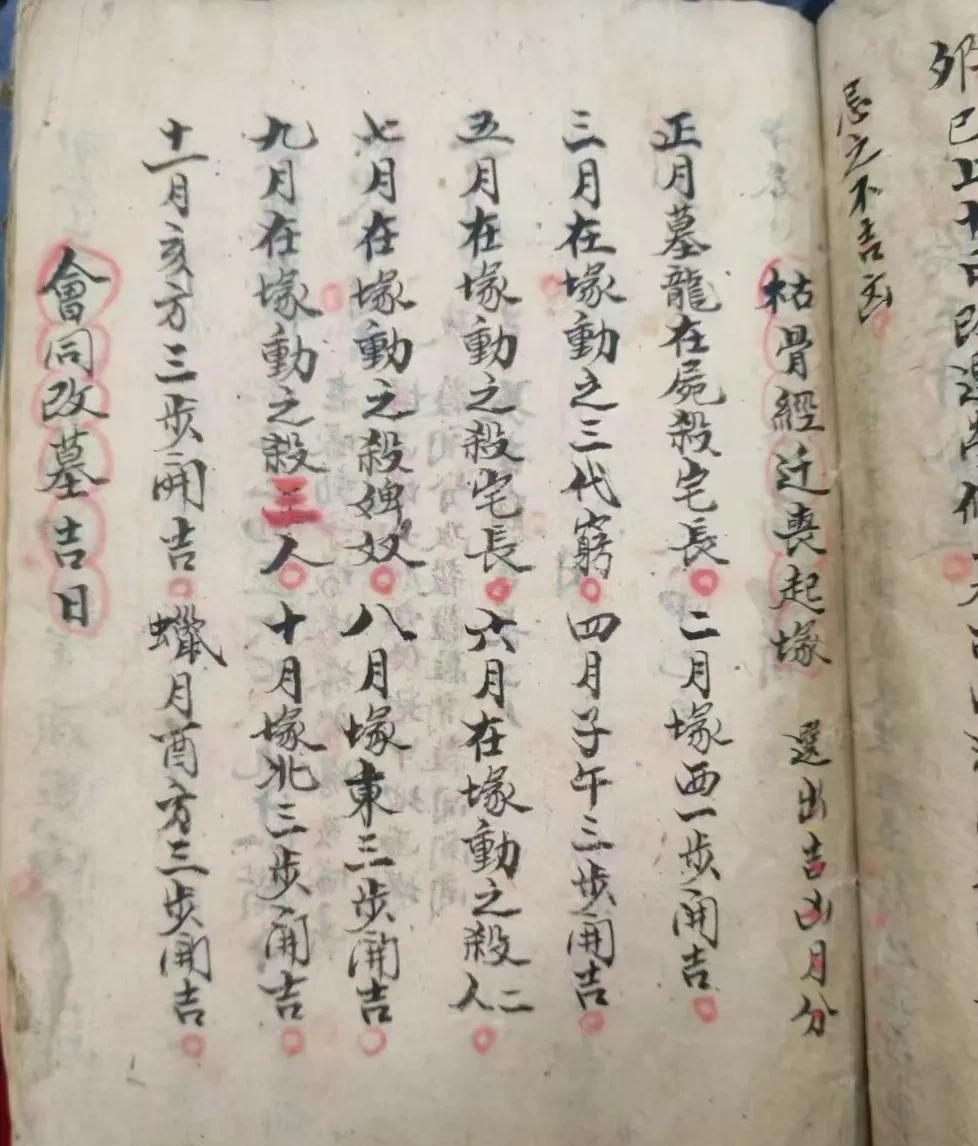 忌之不吉凶
枯骨經迁喪起塚 選出吉凶月分
正月墓龍在屍殺宅長 二月塚西一步開吉
三月在塚動之三代窮 四月子午三步開吉
五月在塚動之殺宅長 六月在塚動之殺二人
七月在塚動之殺婢奴 八月塚東三步開吉
九月在塚動之殺三人 十月塚北三步開吉
十一月亥方三步開吉 蠟月酉方三步開吉
會同改墓吉日